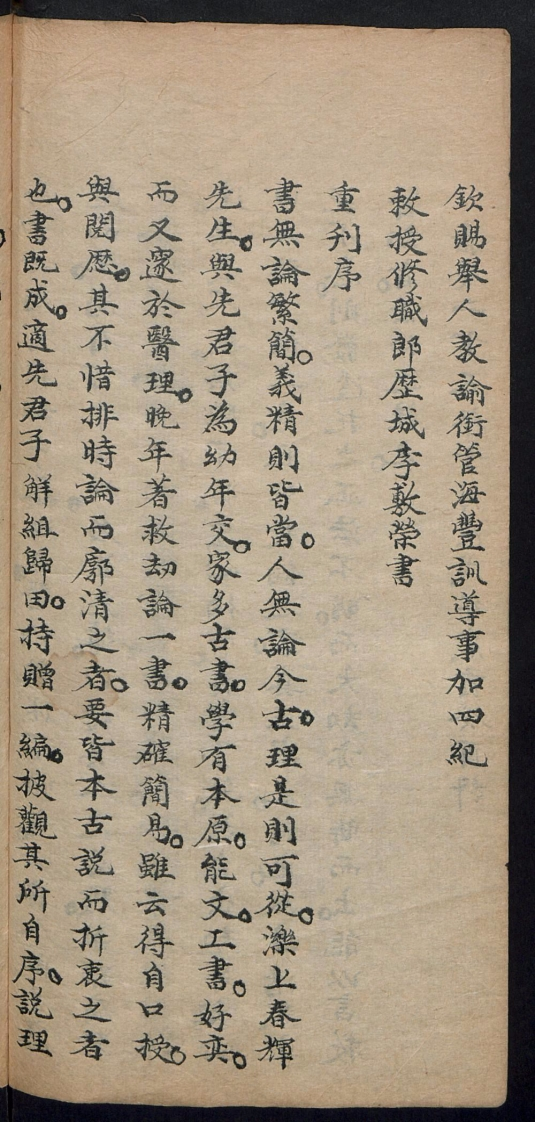 欽賜舉人教論銜管海豐訓導事加四紀
敕授修職郎歷城李敷榮書
重刊序
書無論繁簡。義精則皆當。人無論今古。理是則可從。濼上春輝
先生。與先君子為幼年交。家多古書。學有本原。能文。工書。好奕。
而又邃於醫理。晚年著救劫論一書。精確簡易。雖云得自口授。
與閱歷。其不惜排時論而廓清之者。要皆本古説而折衷之者
也。書既成。適先君子解組歸田。持贈一編。披觀其所自序。説理